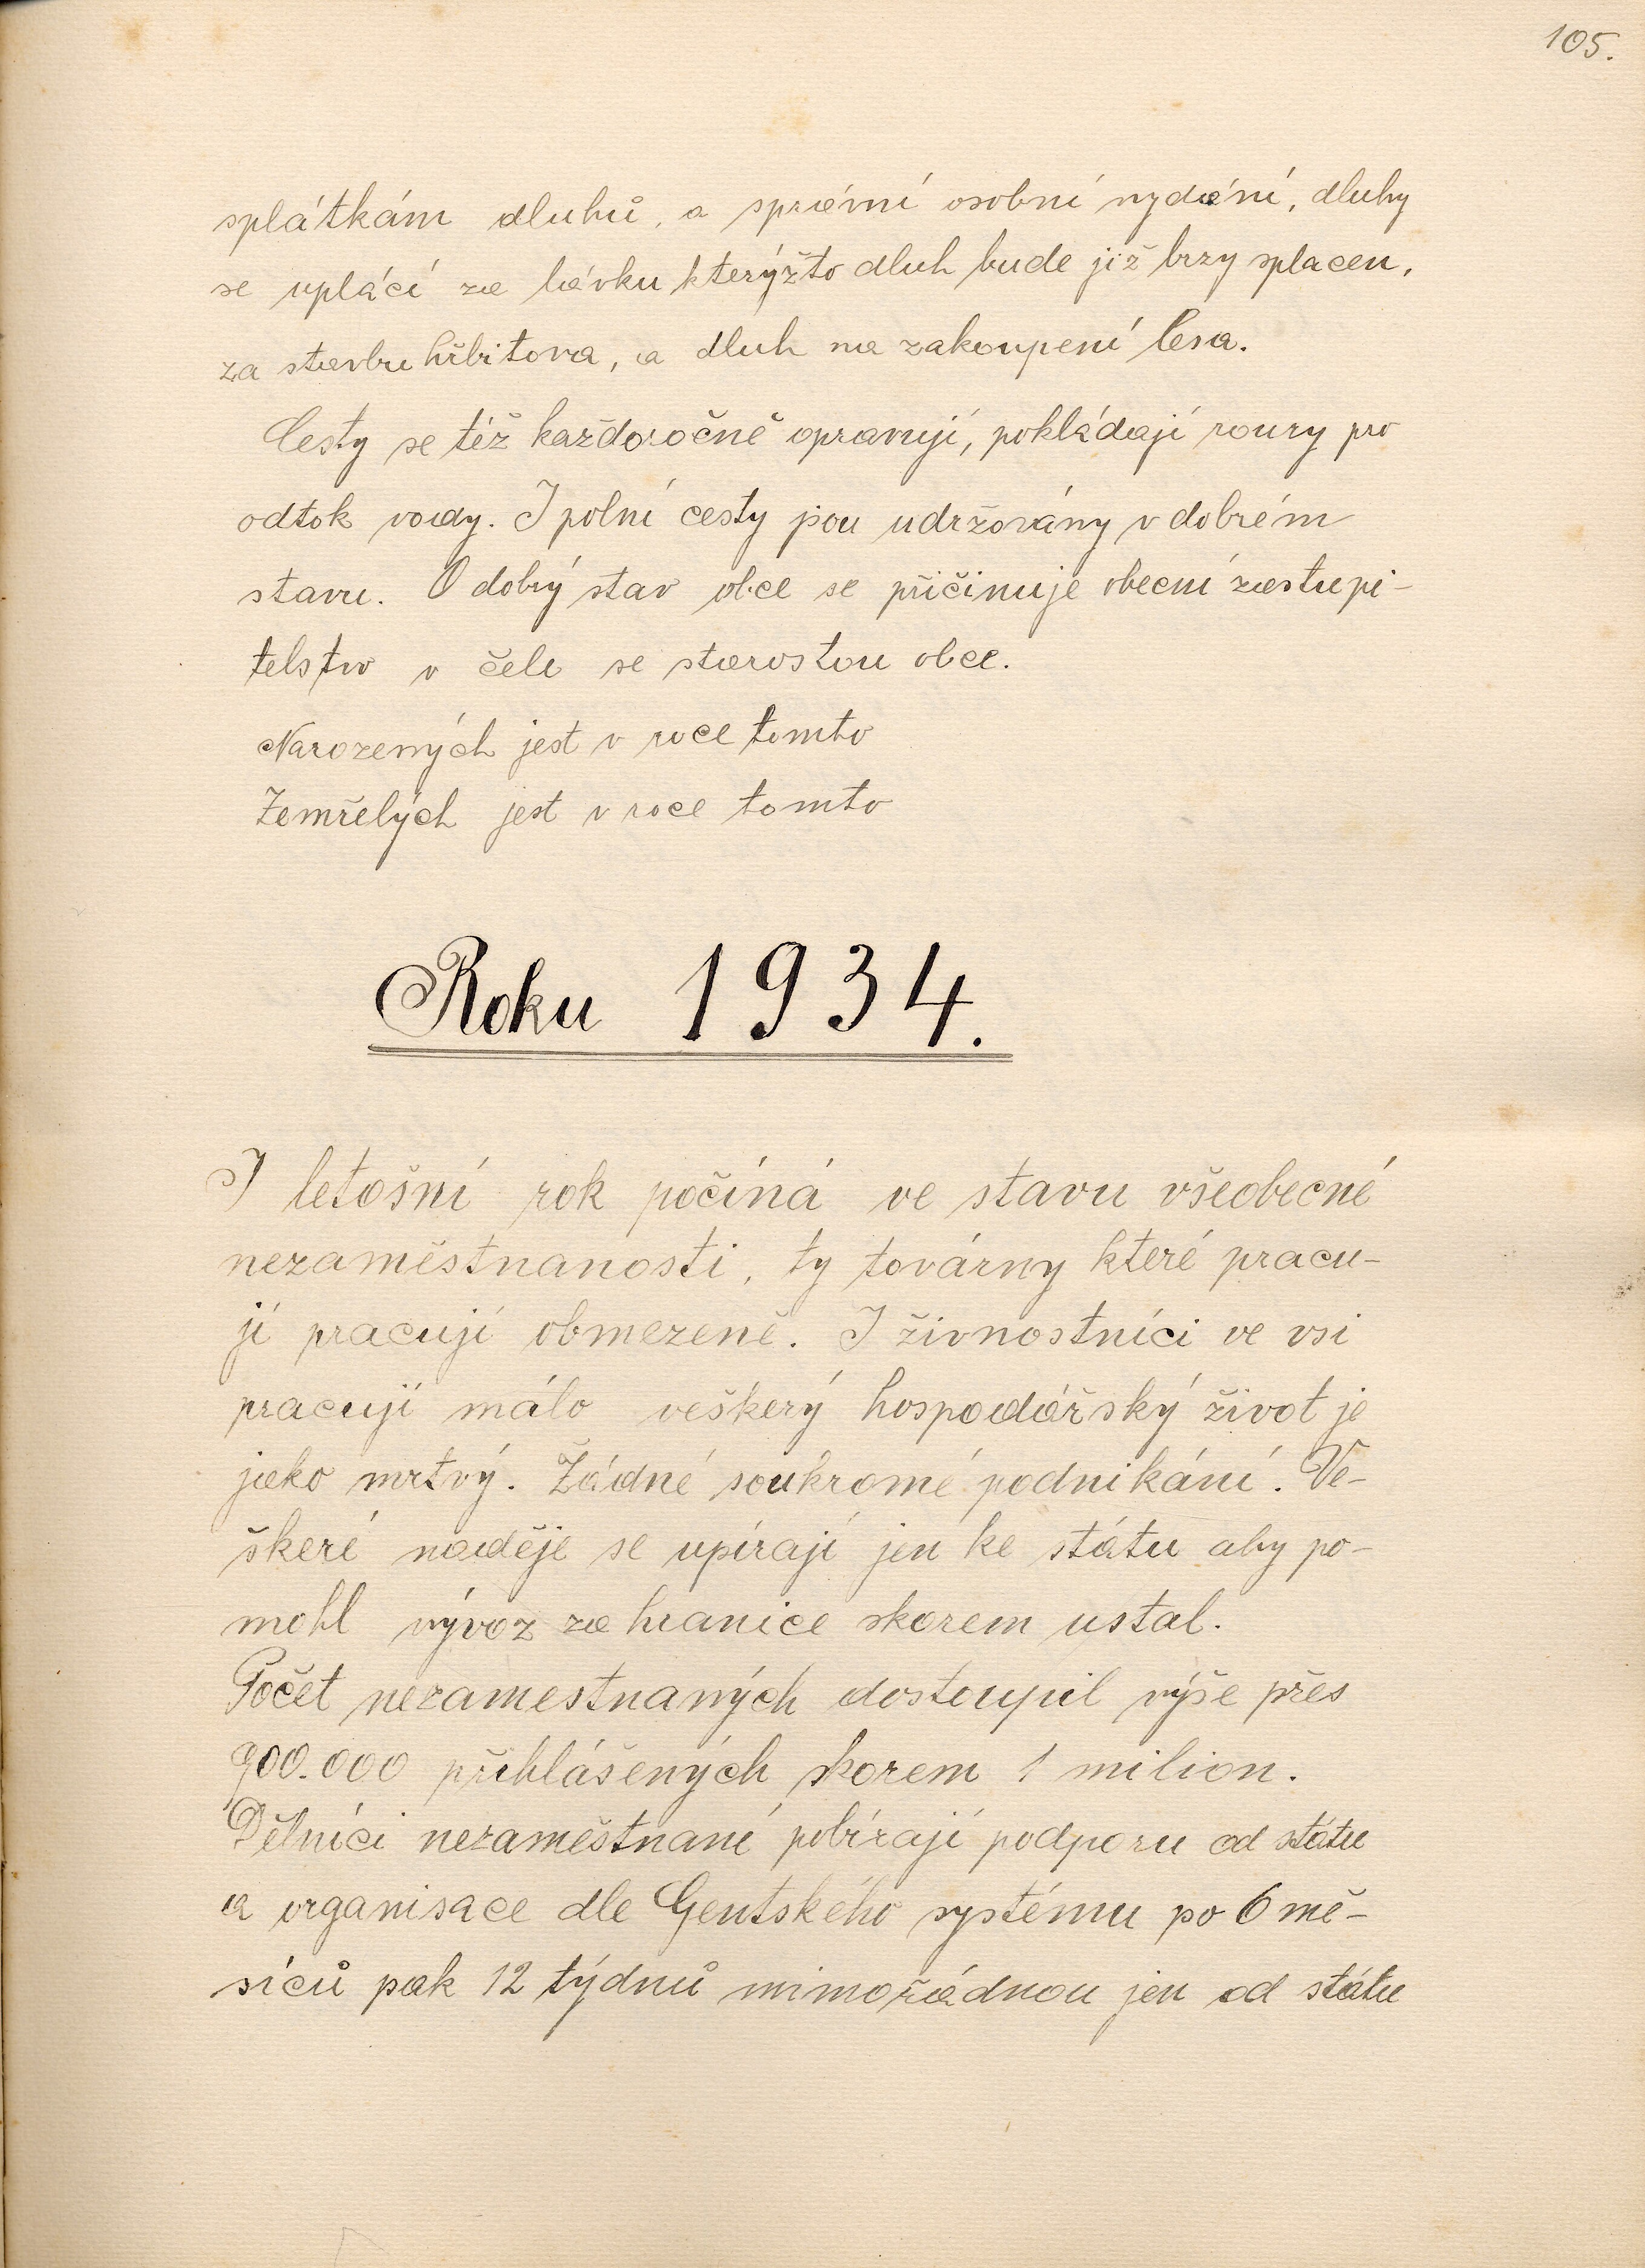 105.
splátkám dluhů, a správní osobní vydání, dluhy
se uplácí za lávku kterýžto dluh bude již brzy splacen,
za stavbu hřbitova, a dluh na zakoupení lesa.
Cesty se též každoročně opravují, pokládají roury pro
odtok vody. I polní cesty jsou udržovány v dobrém
stavu. O dobrý stav obce se přičinuje obecní zastupi-
telstvo v čele se starostou obce.
Narozených jest v roce tomto
Zemřelých jest v roce tomto
Roku 1934.
I letošní rok počíná ve stavu všeobecné
nezaměstnanosti, ty továrny které pracu-
jí pracují obmezeně. I živnostníci ve vsi
pracují málo veškerý hospodářský život je
jako mrtvý. Žádné soukromé podnikání. Ve-
škeré naděje se upírají jen ke státu aby po-
mohl vývoz za hranice skorem ustal.
Počet nezamestnaných dostoupil výše přes
900.000 přihlášených skorem 1 milion.
Dělníci nezaměstnaní pobírají podporu od státu
a organisace dle Gentského systému po 6 mě-
síců pak 12 týdnů mimořádnou jen od státu